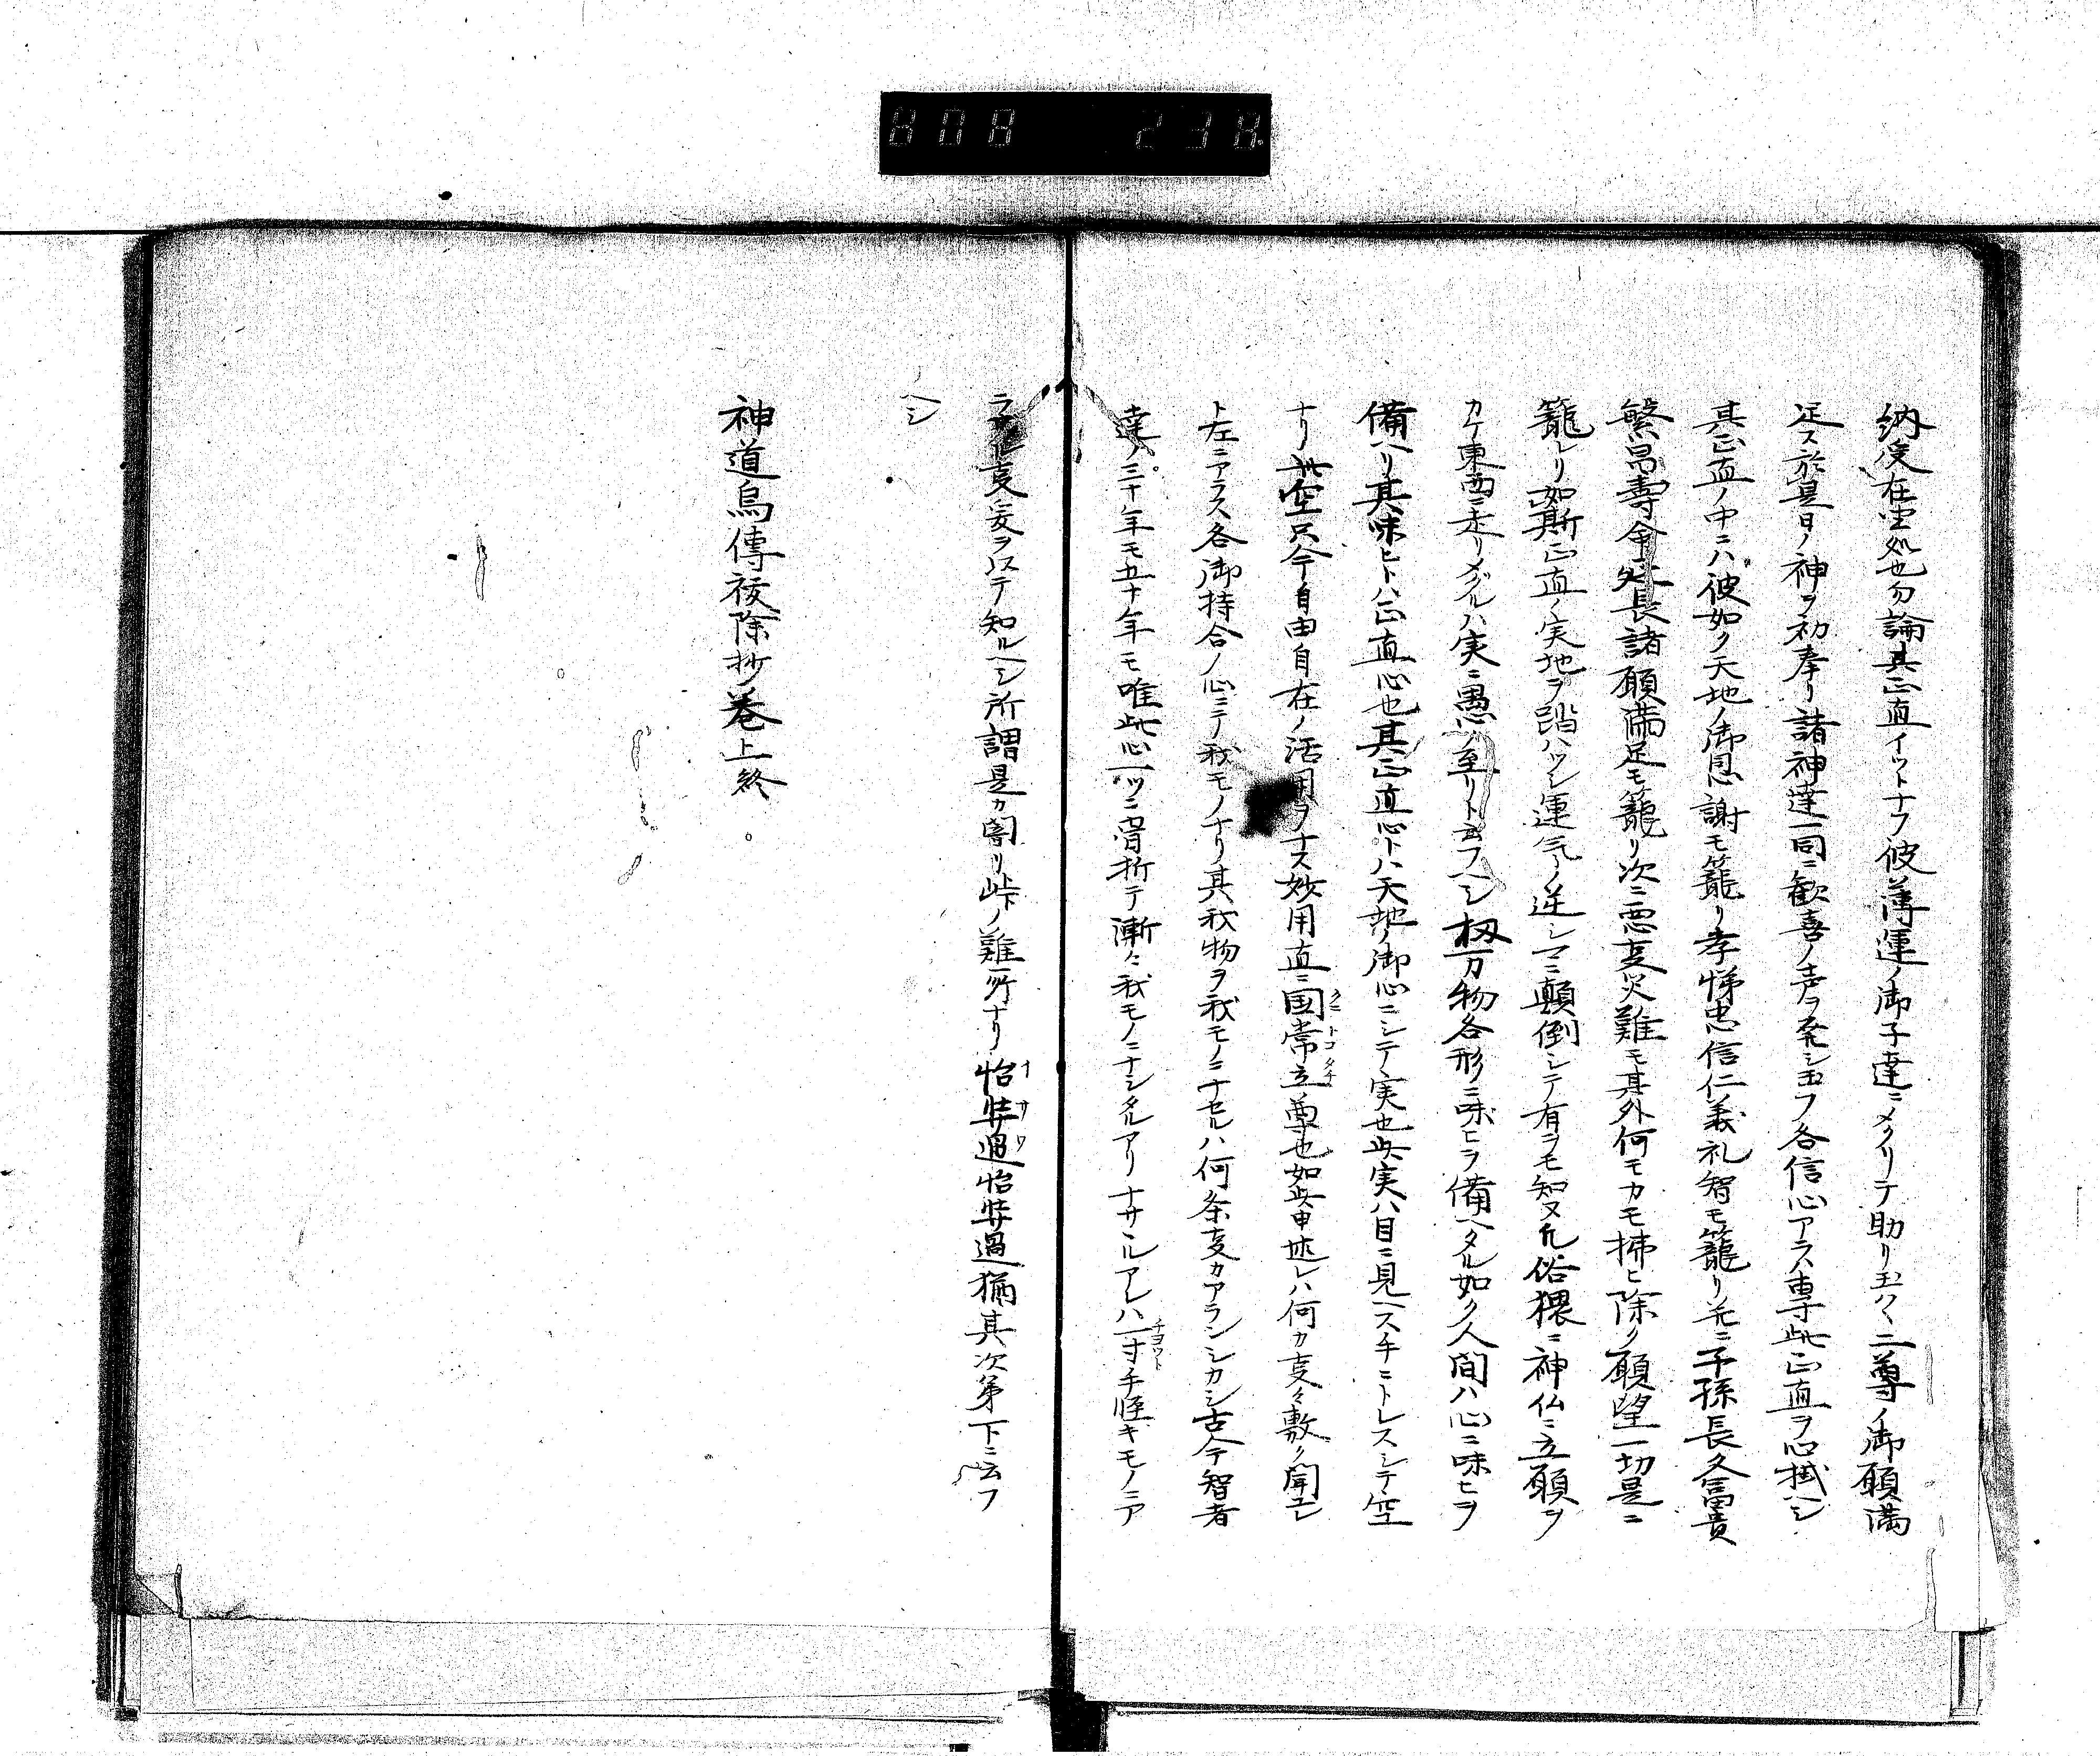 808 238
納受在坐処也勿論其正直イツトナフ彼薄運ノ御子達ニメクリテ助リ玉ハヽ二尊ノ御願満
足ス於是日ノ神ヲ初奉リ諸神達一同ニ歓喜ノ声ヲ発シ玉フ各信心アラハ専此正直ヲ心掛ヘシ
其正直ノ中ニハ彼如ク天地ノ御恩謝モ籠リ孝悌忠信仁義礼智モ籠リ並ニ子孫長久冨貴
繁昌寿命延長諸願満足モ籠リ次ニ悪夏災難モ其外何モカモ拂ヒ除ク願望一切是ニ
籠レリ如斯正直ノ実地ヲ踏ハツシ運気ノ逆シマニ顛倒シテ有ヲモ知ヌ凡俗猥ニ神仏ニ立願ヲ
カケ東西ニ走リメグルハ実ニ愚ノ至リト云フヘシ扨万物各形ニ味ヒヲ備ヘタル如ク人間ハ心ニ味ヒヲ
備ヘリ其味ヒトハ正直心也其正直心トハ天地ノ御心ニシテ実也此実ハ目ニ見ヘス手ニトレスシテ空
ナリ此空只今自由自在ノ活用ヲナス妙用直ニ国常立尊也如此申述レハ何カ夏々敷ク聞ユレ
ト左ニアラス各御持合ノ心ニテ我モノナリ其我物ヲ我モノニナセルハ何条夏カアランシカシ古今テ智者
達ノ三十年モ五十年モ唯此心一ツニ骨折テ漸々我モノニナシタルアリナサヽルアレハ一寸手軽キモノニア
ラサル夏妄ラハステ知ルヘシ所謂是カ闇リ峠ノ難所ナリ怡弉過怡弉過猶其次第下ニ云フ
ヘシ
神道烏傳祓除抄巻上終